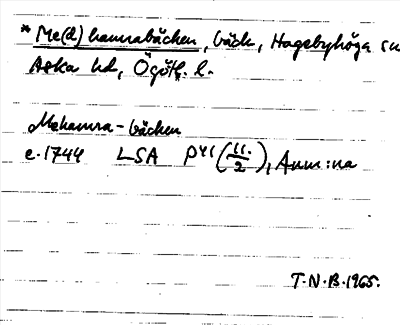 *Me(d)hamrabäcken, bäck, Hagebyhöga sn
Aska hd, Ögötl. l.
Mehamra-bäcken
c. 1744 LSA D41 (11./2), Anm:na
T.N.B. 1965.